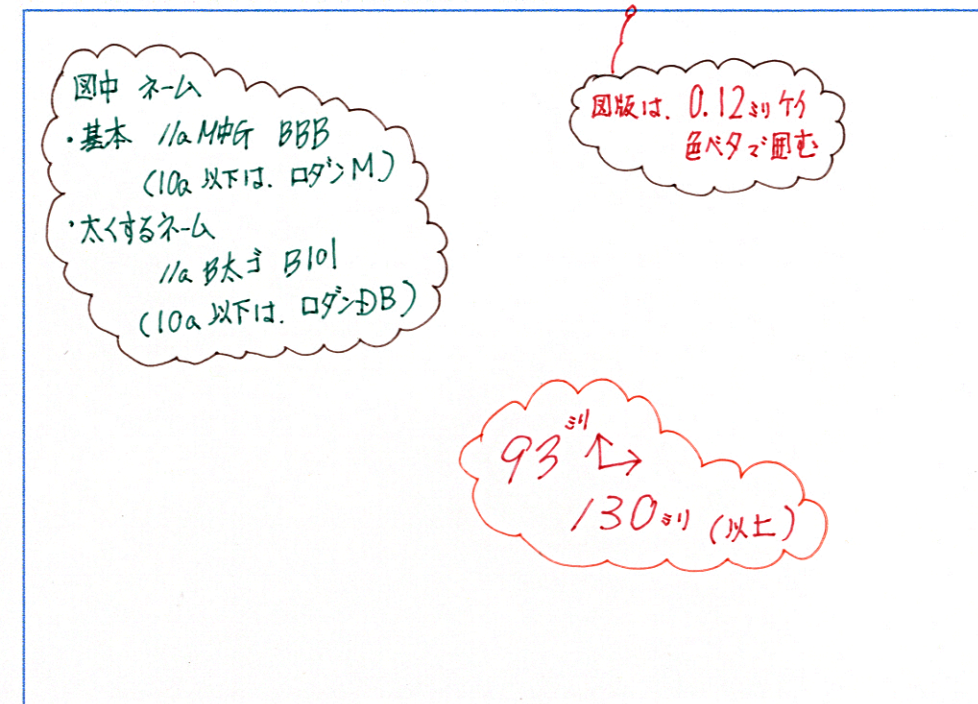 図中 ネーム
・基本 11a M中G BBB
(10a 以下は. ロダンM)
・太くするネーム
11a B太ゴ B101
(10a 以下は. ロダンDB)
図版は. 0.12ミリケイ
色ベタで囲む
93ミリ↑→
130ミリ (以上)